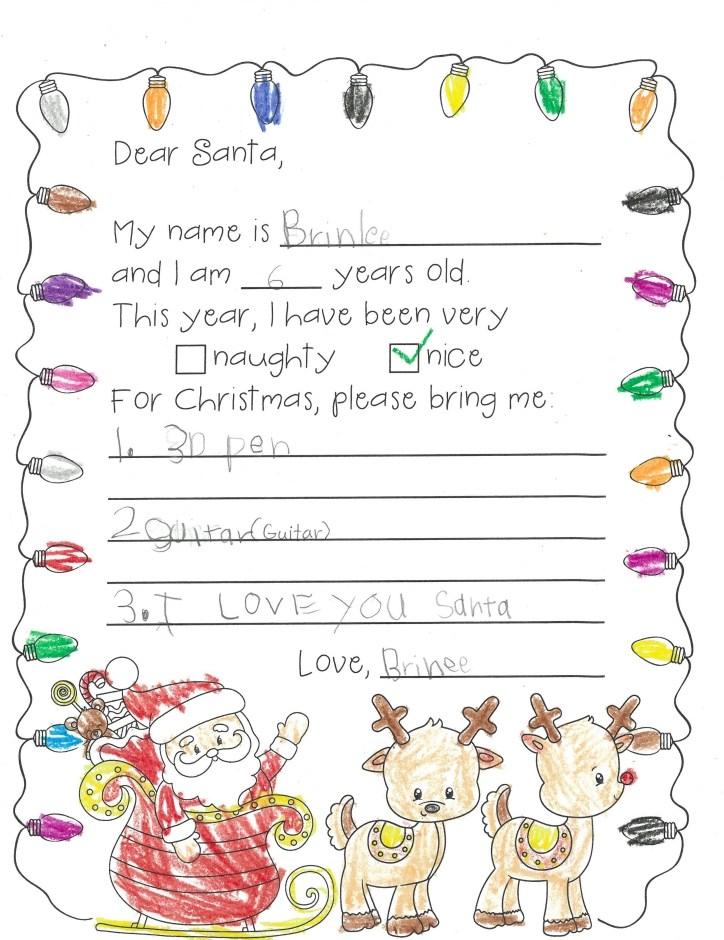 Dear Santa,
My name is Brinlee
and I am 6 years old.
This year, I have been very
naughty nice
For Christmas, please bring me:
1. 3D pen
2 guitar (Guitar)
3. I LOVE YOU Santa
Love, Brinee